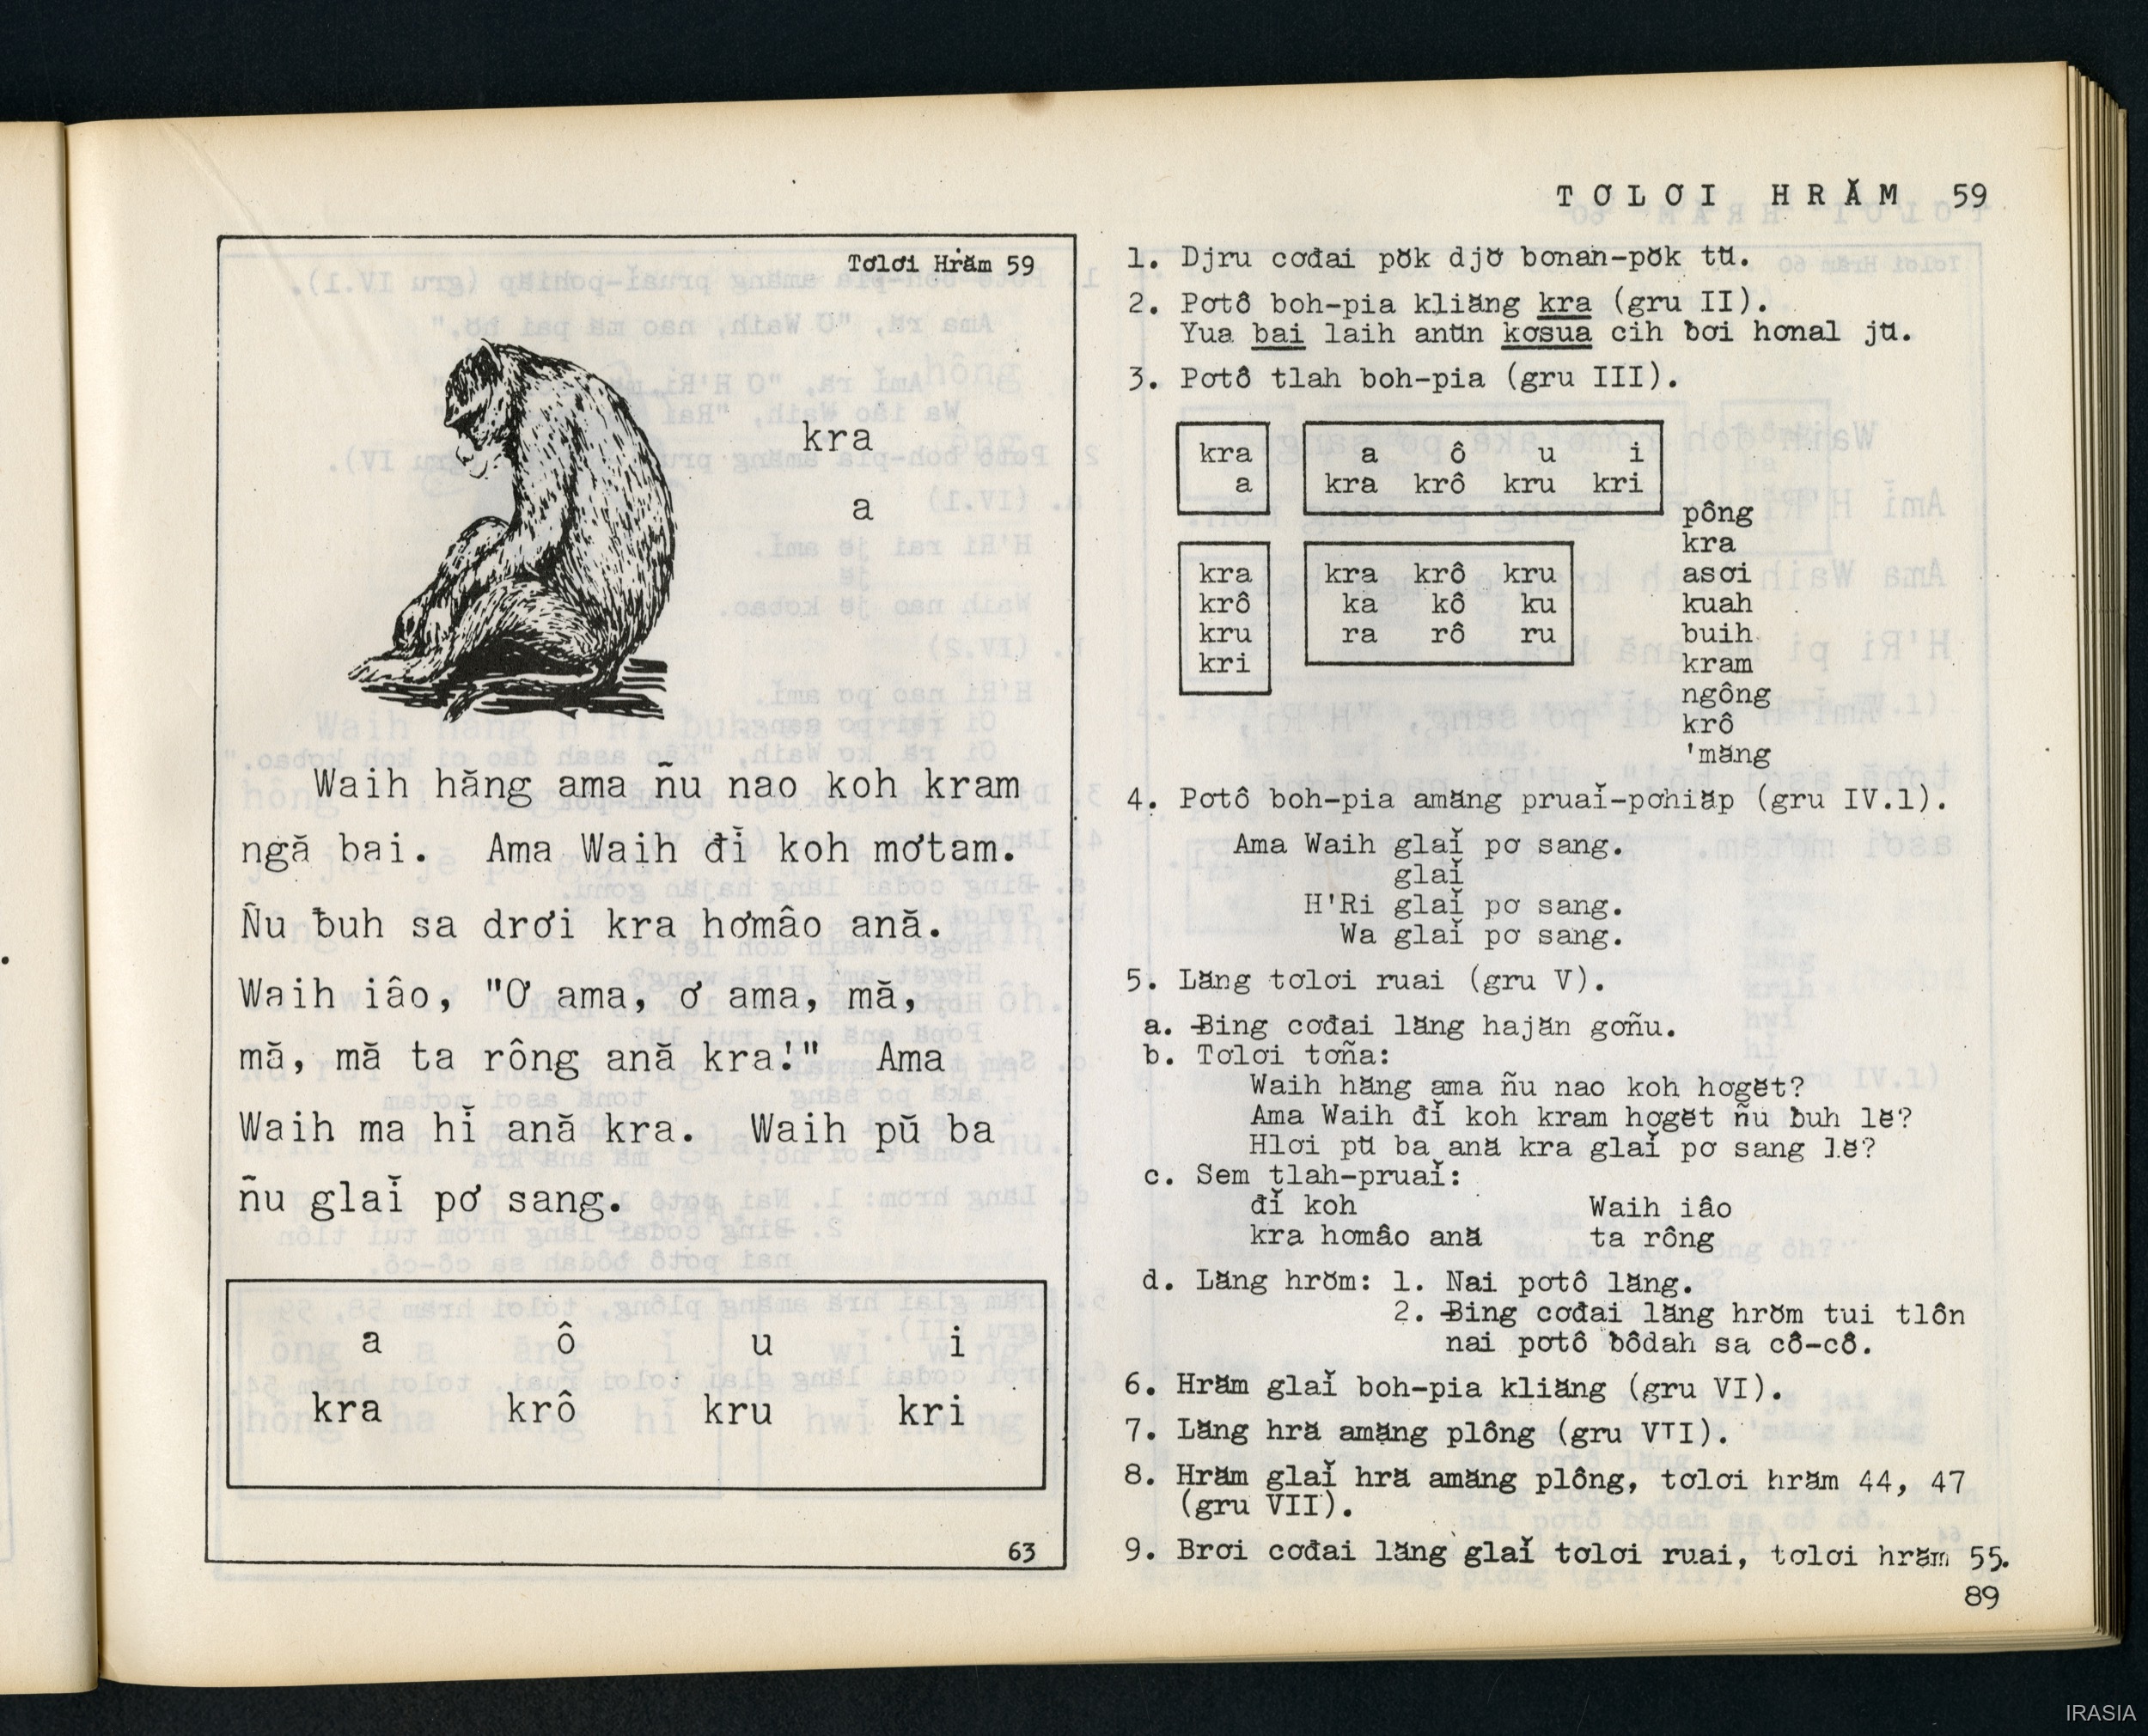 Tơlơi Hrăm 59
kra
a
Waih hăng ama ñu nao koh kram
ngă bai. Ama Waih đĭ koh mơtam.
Ñu ƀuh sa drơi kra hơmâo ană.
Waih iâo, "Ơ ama, ơ ama, mă,
mă, mă ta rông ană kra!" Ama
Waih ma hĭ ană kra. Waih pŭ ba
ñu glaĭ pơ sang.
a ô u i
kra krô kru kri
63
TƠLƠI HRĂM 59
1. Djru cơđai pŏk djơ̆ bơnan-pŏk tŭ.
2. Pơtô boh-pia kliăng kra (gru II).
Yua bai laih anŭn kơsua cih ƀơi hơnal jŭ.
3. Pơtô tlah boh-pia (gru III).
kra a ô u i
a kra krô kru kri
kra kra krô kru
krô ka kô ku
kru ra rô ru
kri
pông
kra
asơi
kuah
buih
kram
ngông
krô
'măng
4. Pơtô boh-pia amăng pruaĭ-pơhiăp (gru IV.1).
Ama Waih glaĭ pơ sang.
glaĭ
H'Ri glaĭ pơ sang.
Wa glaĭ pơ sang.
5. Lăng tơlơi ruai (gru V).
a. Ƀing cơđai lăng hajăn gơñu.
b. Tơlơi tơña:
Waih hăng ama ñu nao koh hơgĕt?
Ama Waih đĭ koh kram hơgĕt ñu ƀuh lĕ?
Hlơi pŭ ba ană kra glaĭ pơ sang lĕ?
c. Sem tlah-pruaĭ:
đĭ koh Waih iâo
kra hơmâo ană ta rông
d. Lăng hrŏm: 1. Nai pơtô lăng.
2. Ƀing cơđai lăng hrŏm tui tlôn
nai pơtô ƀôdah sa cô̆-cô̆.
6. Hrăm glaĭ boh-pia kliăng (gru VI).
7. Lăng hră amăng plông (gru VII).
8. Hrăm glaĭ hră amăng plông, tơlơi hrăm 44, 47
(gru VII).
9. Brơi cơđai lăng glaĭ tơlơi ruai, tơlơi hrăm 55.
89
IRASIA